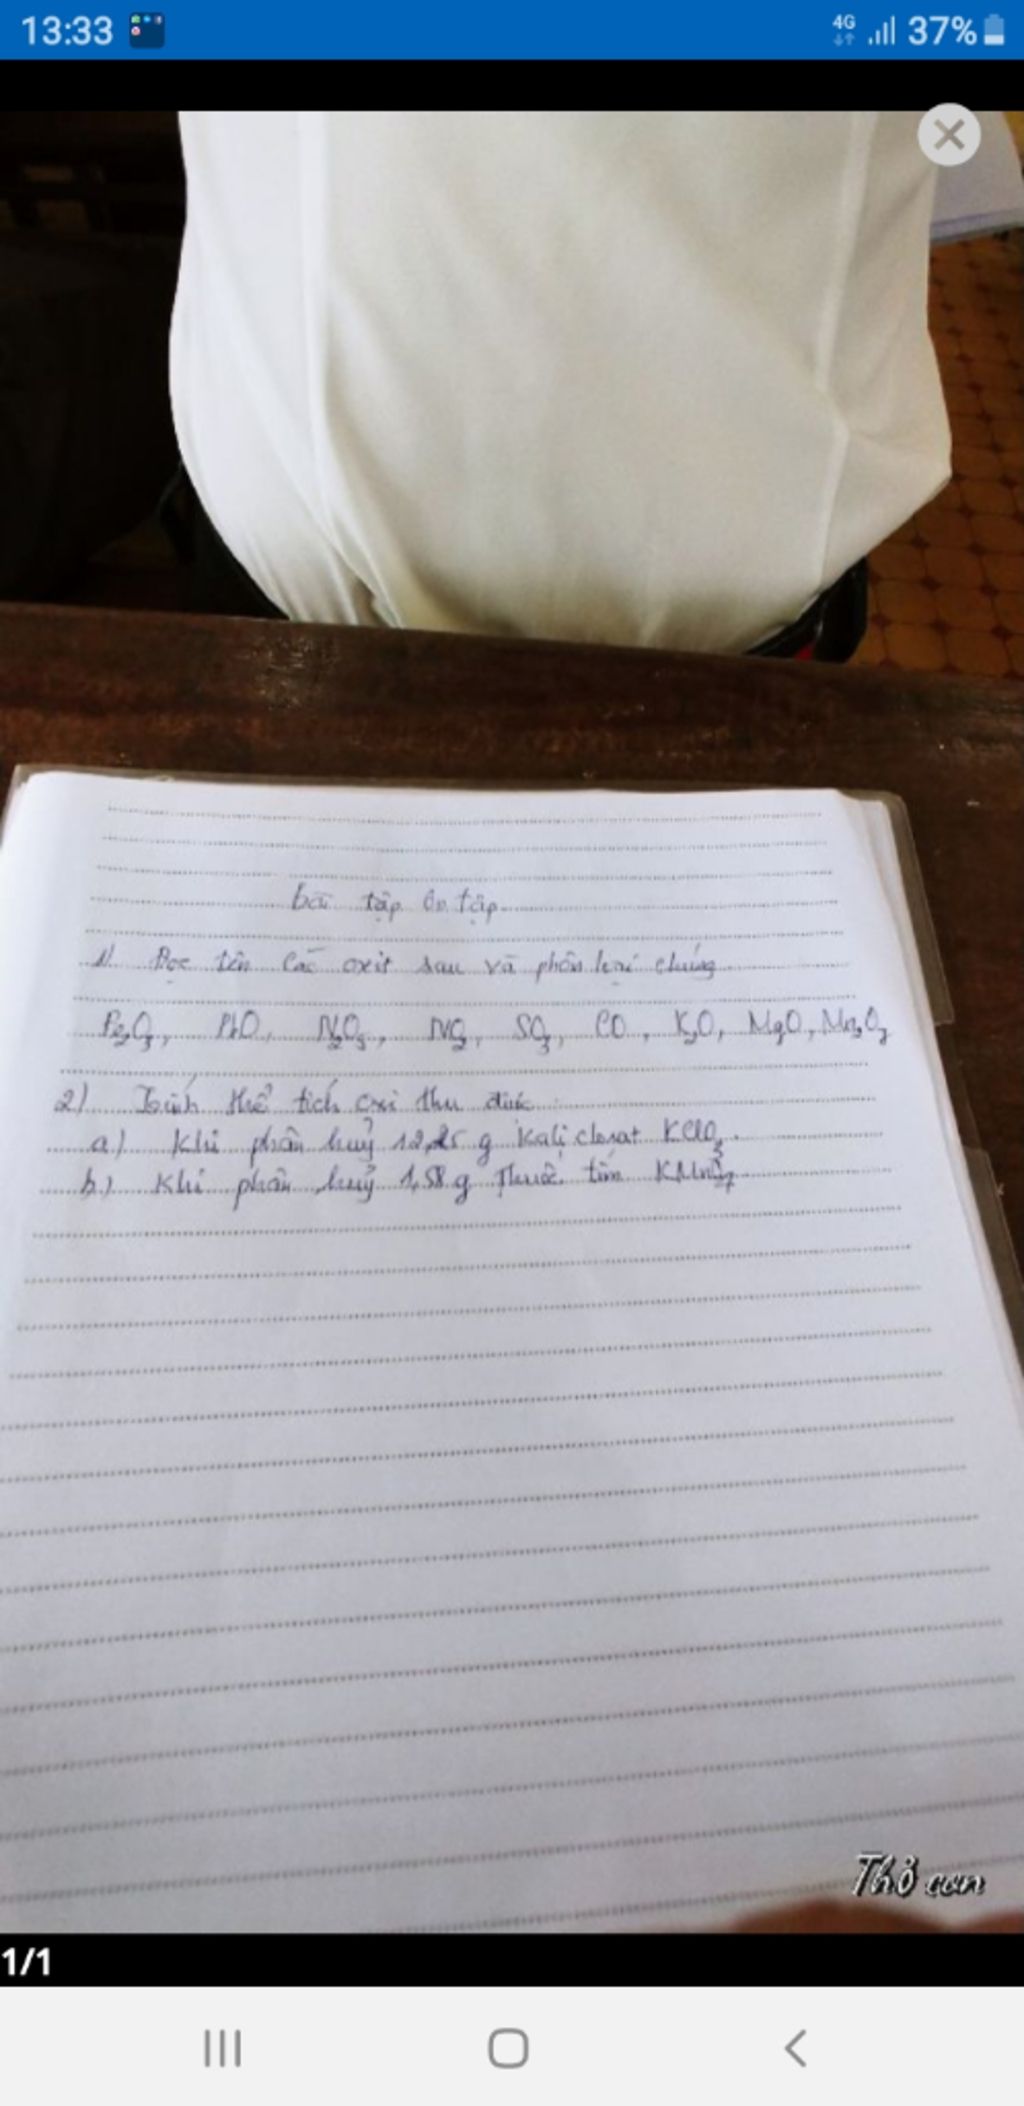 13:33 4G 37%
bài tập ôn tập
1) Đọc tên các oxit sau và phân loại chúng
Fe2O3, PbO, N2O5, NO2, SO3, CO, K2O, MgO, Mn2O7
2) Tính thể tích oxi thu được
a) Khi phân huỷ 12,25 g Kali clorat KClO3.
b) Khi phân huỷ 1,58 g thuốc tím
Thở
1/1